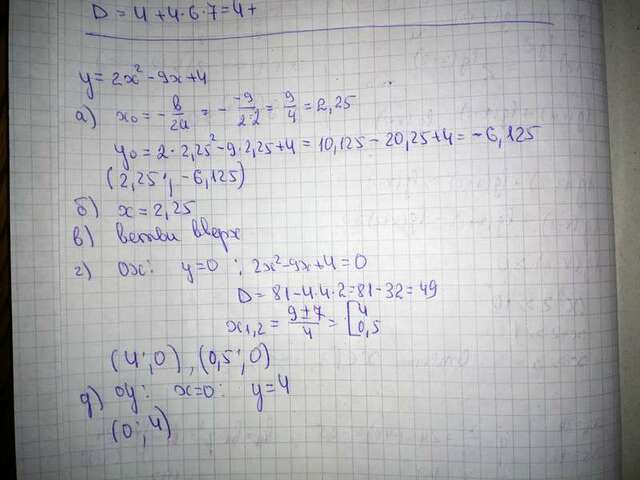 D = 4 + 4·6·7 = 4 +
y = 2x² - 9x + 4
а) x₀ = - b/2a = - -9/2·2 = 9/4 = 2,25
y₀ = 2·2,25² - 9·2,25 + 4 = 10,125 - 20,25 + 4 = -6,125
(2,25; -6,125)
б) x = 2,25
в) ветви вверх
г) Ox: y=0; 2x² - 9x + 4 = 0
D = 81 - 4·4·2 = 81 - 32 = 49
x₁,₂ = 9±7/4 = [4 0,5
(4; 0), (0,5; 0)
д) Oy: x=0: y=4
(0; 4)